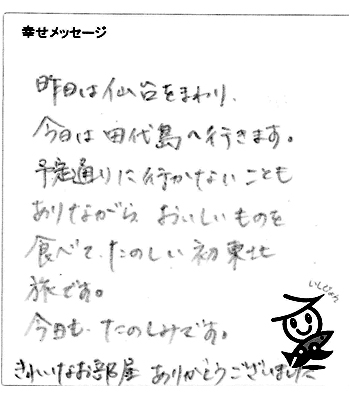 幸せメッセージ
昨日は仙台をまわり、
今日は田代島へ行きます。
予定通りに行かないことも
ありながら、おいしいものを
食べて、たのしい初東北
旅です。
今日も、たのしみです。
きれいなお部屋 ありがとうございました